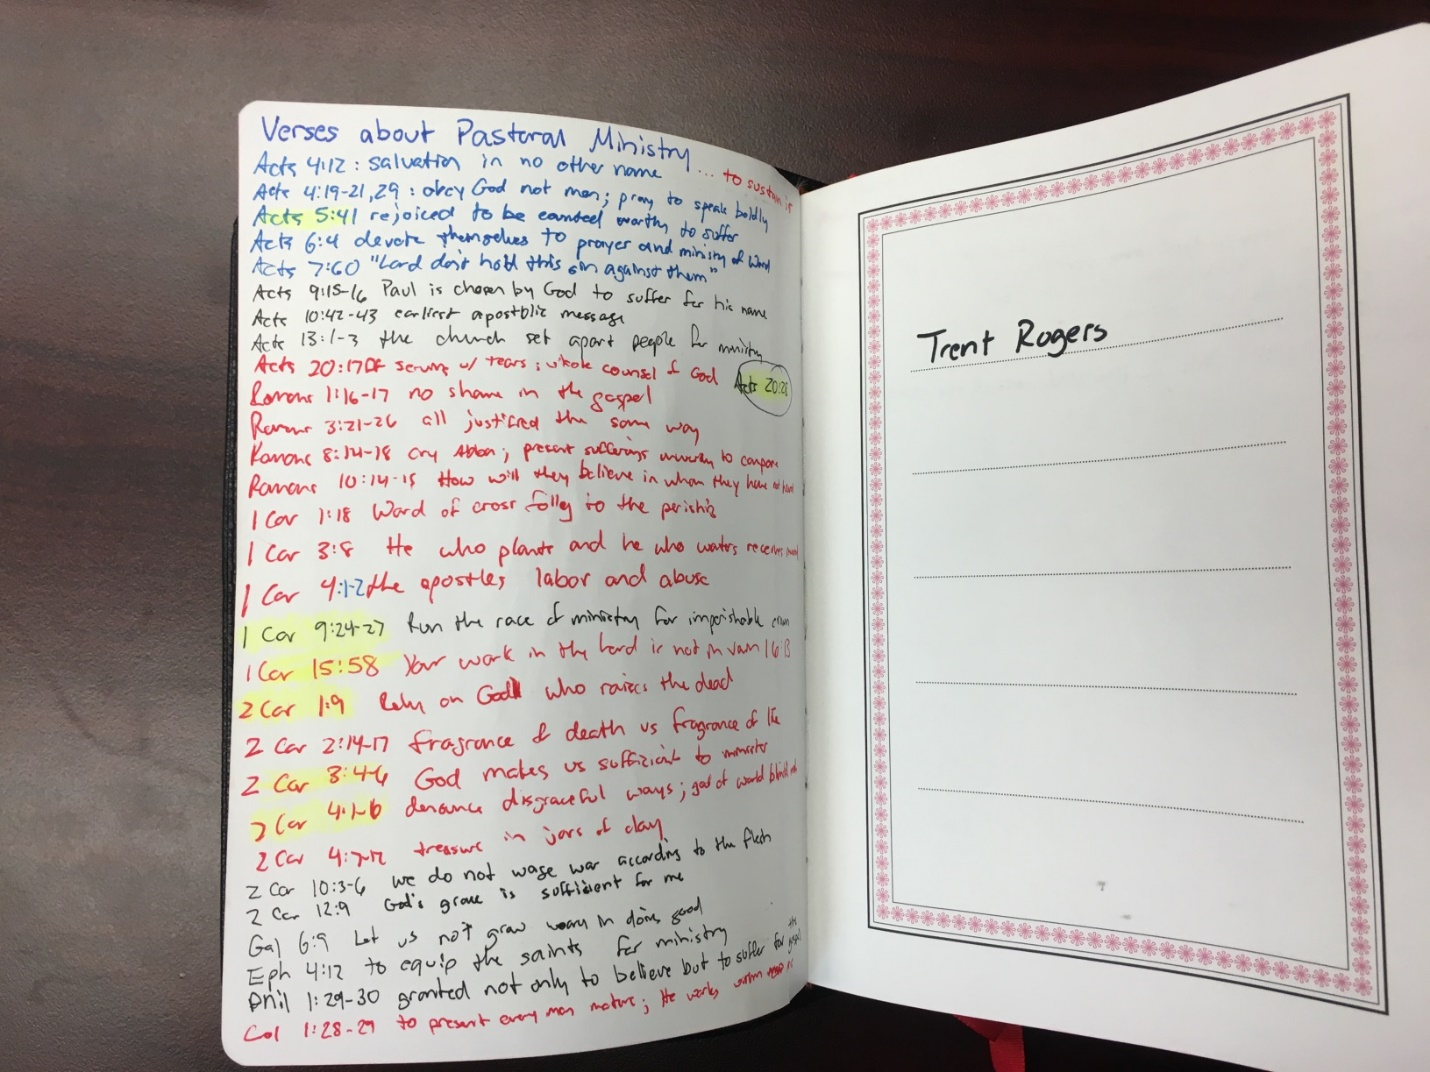 Verses about Pastoral Ministry ... to sustain
Acts 4:12 : salvation in no other name
Acts 4:19-21,29 : obey God not men; pray to speak boldly
Acts 5:41 rejoiced to be counted worthy to suffer
Acts 6:4 devote themselves to prayer and ministry of Word
Acts 7:60 "Lord don't hold this sin against them"
Acts 9:15-16 Paul is chosen by God to suffer for his name
Acts 10:42-43 earliest apostolic message
Acts 13:1-3 the church set apart people for ministry
Acts 20:17ff serving w/ tears; whole counsel of God
Acts 20:28
Romans 1:16-17 no shame in the gospel
Romans 3:21-26 all justified the same way
Romans 8:14-18 cry Abba; present sufferings unworthy to compare
Romans 10:14-15 How will they believe in whom they have not heard
1 Cor 1:18 Word of cross folly to the perishing
1 Cor 3:8 He who plants and he who waters receives
1 Cor 4:1-2 the apostles labor and abuse
1 Cor 9:24-27 Run the race of ministry for imperishable crown
1 Cor 15:58 Your work in the Lord is not in vain 16:13
2 Cor 1:9 Rely on God who raises the dead
2 Cor 2:14-17 fragrance of death vs fragrance of life
2 Cor 3:4-6 God makes us sufficient to minister
2 Cor 4:1-6 denounce disgraceful ways; god of world
2 Cor 4:7-12 treasure in jars of clay
2 Cor 10:3-6 we do not wage war according to the flesh
2 Cor 12:9 God's grace is sufficient for me
Gal 6:9 Let us not grow weary in doing good
Eph 4:12 to equip the saints for ministry
Phil 1:29-30 granted not only to believe but to suffer for the gospel
Col 1:28-29 to present every man mature; He works within
Trent Rogers